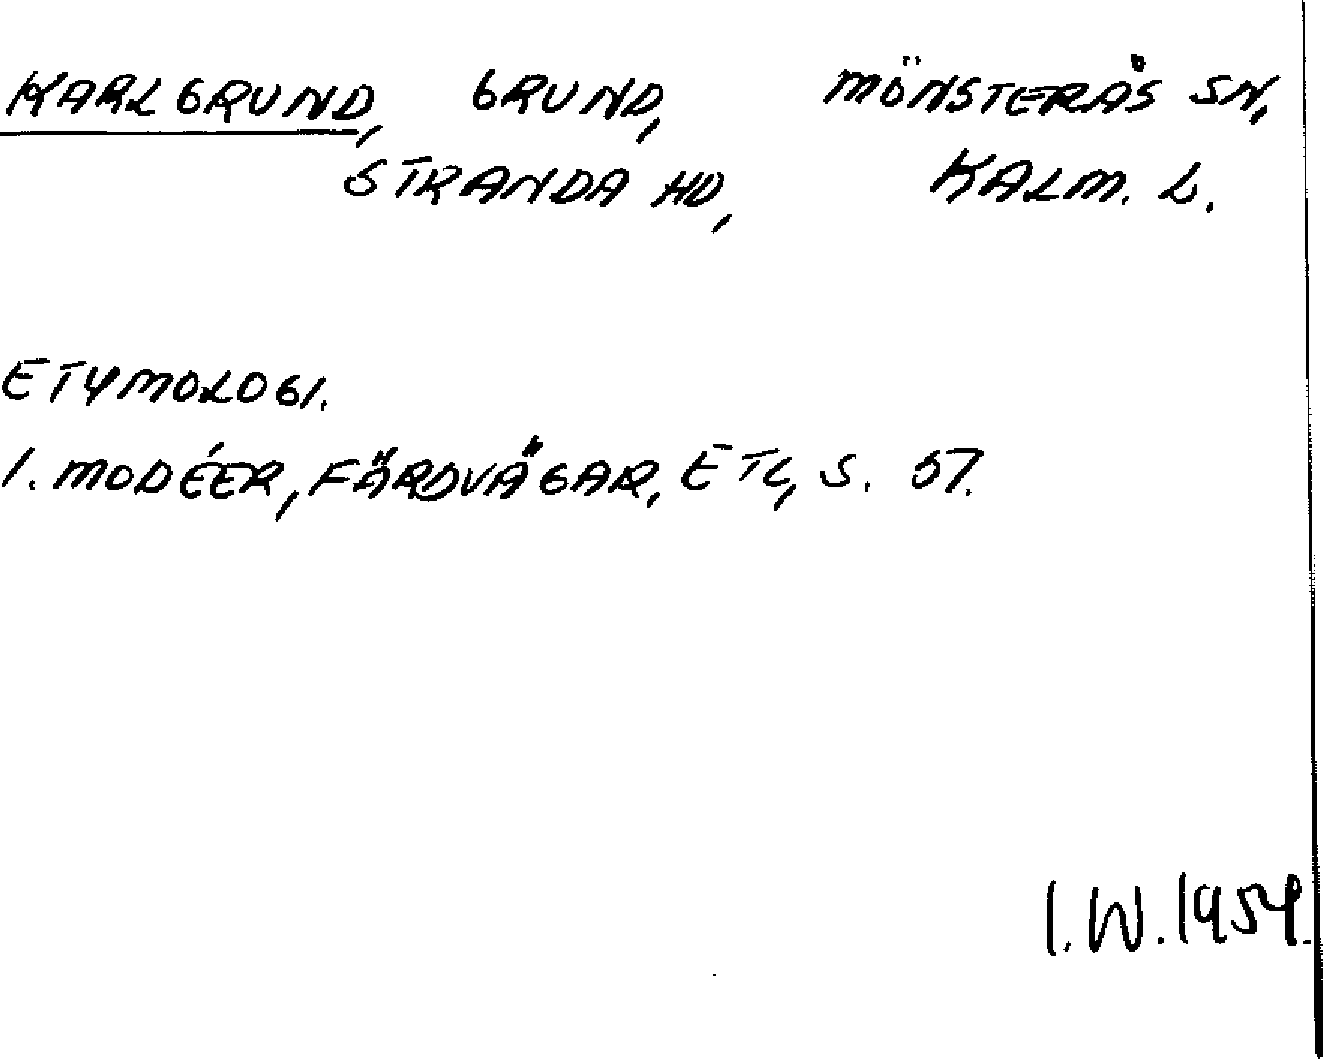 KARLGRUND, GRUND, MÖNSTERÅS SN,
STRANDA HD, KALM. L.
ETYMOLOGI.
I. MODÉER, FÄRDVÄGAR, ETC, S. 57.
I.W. 1954.